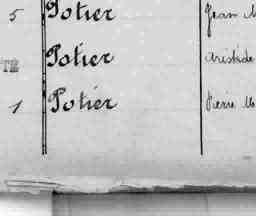 5 Potier Jean M
TÉ Potier Aristide
1 Potier Pierre M